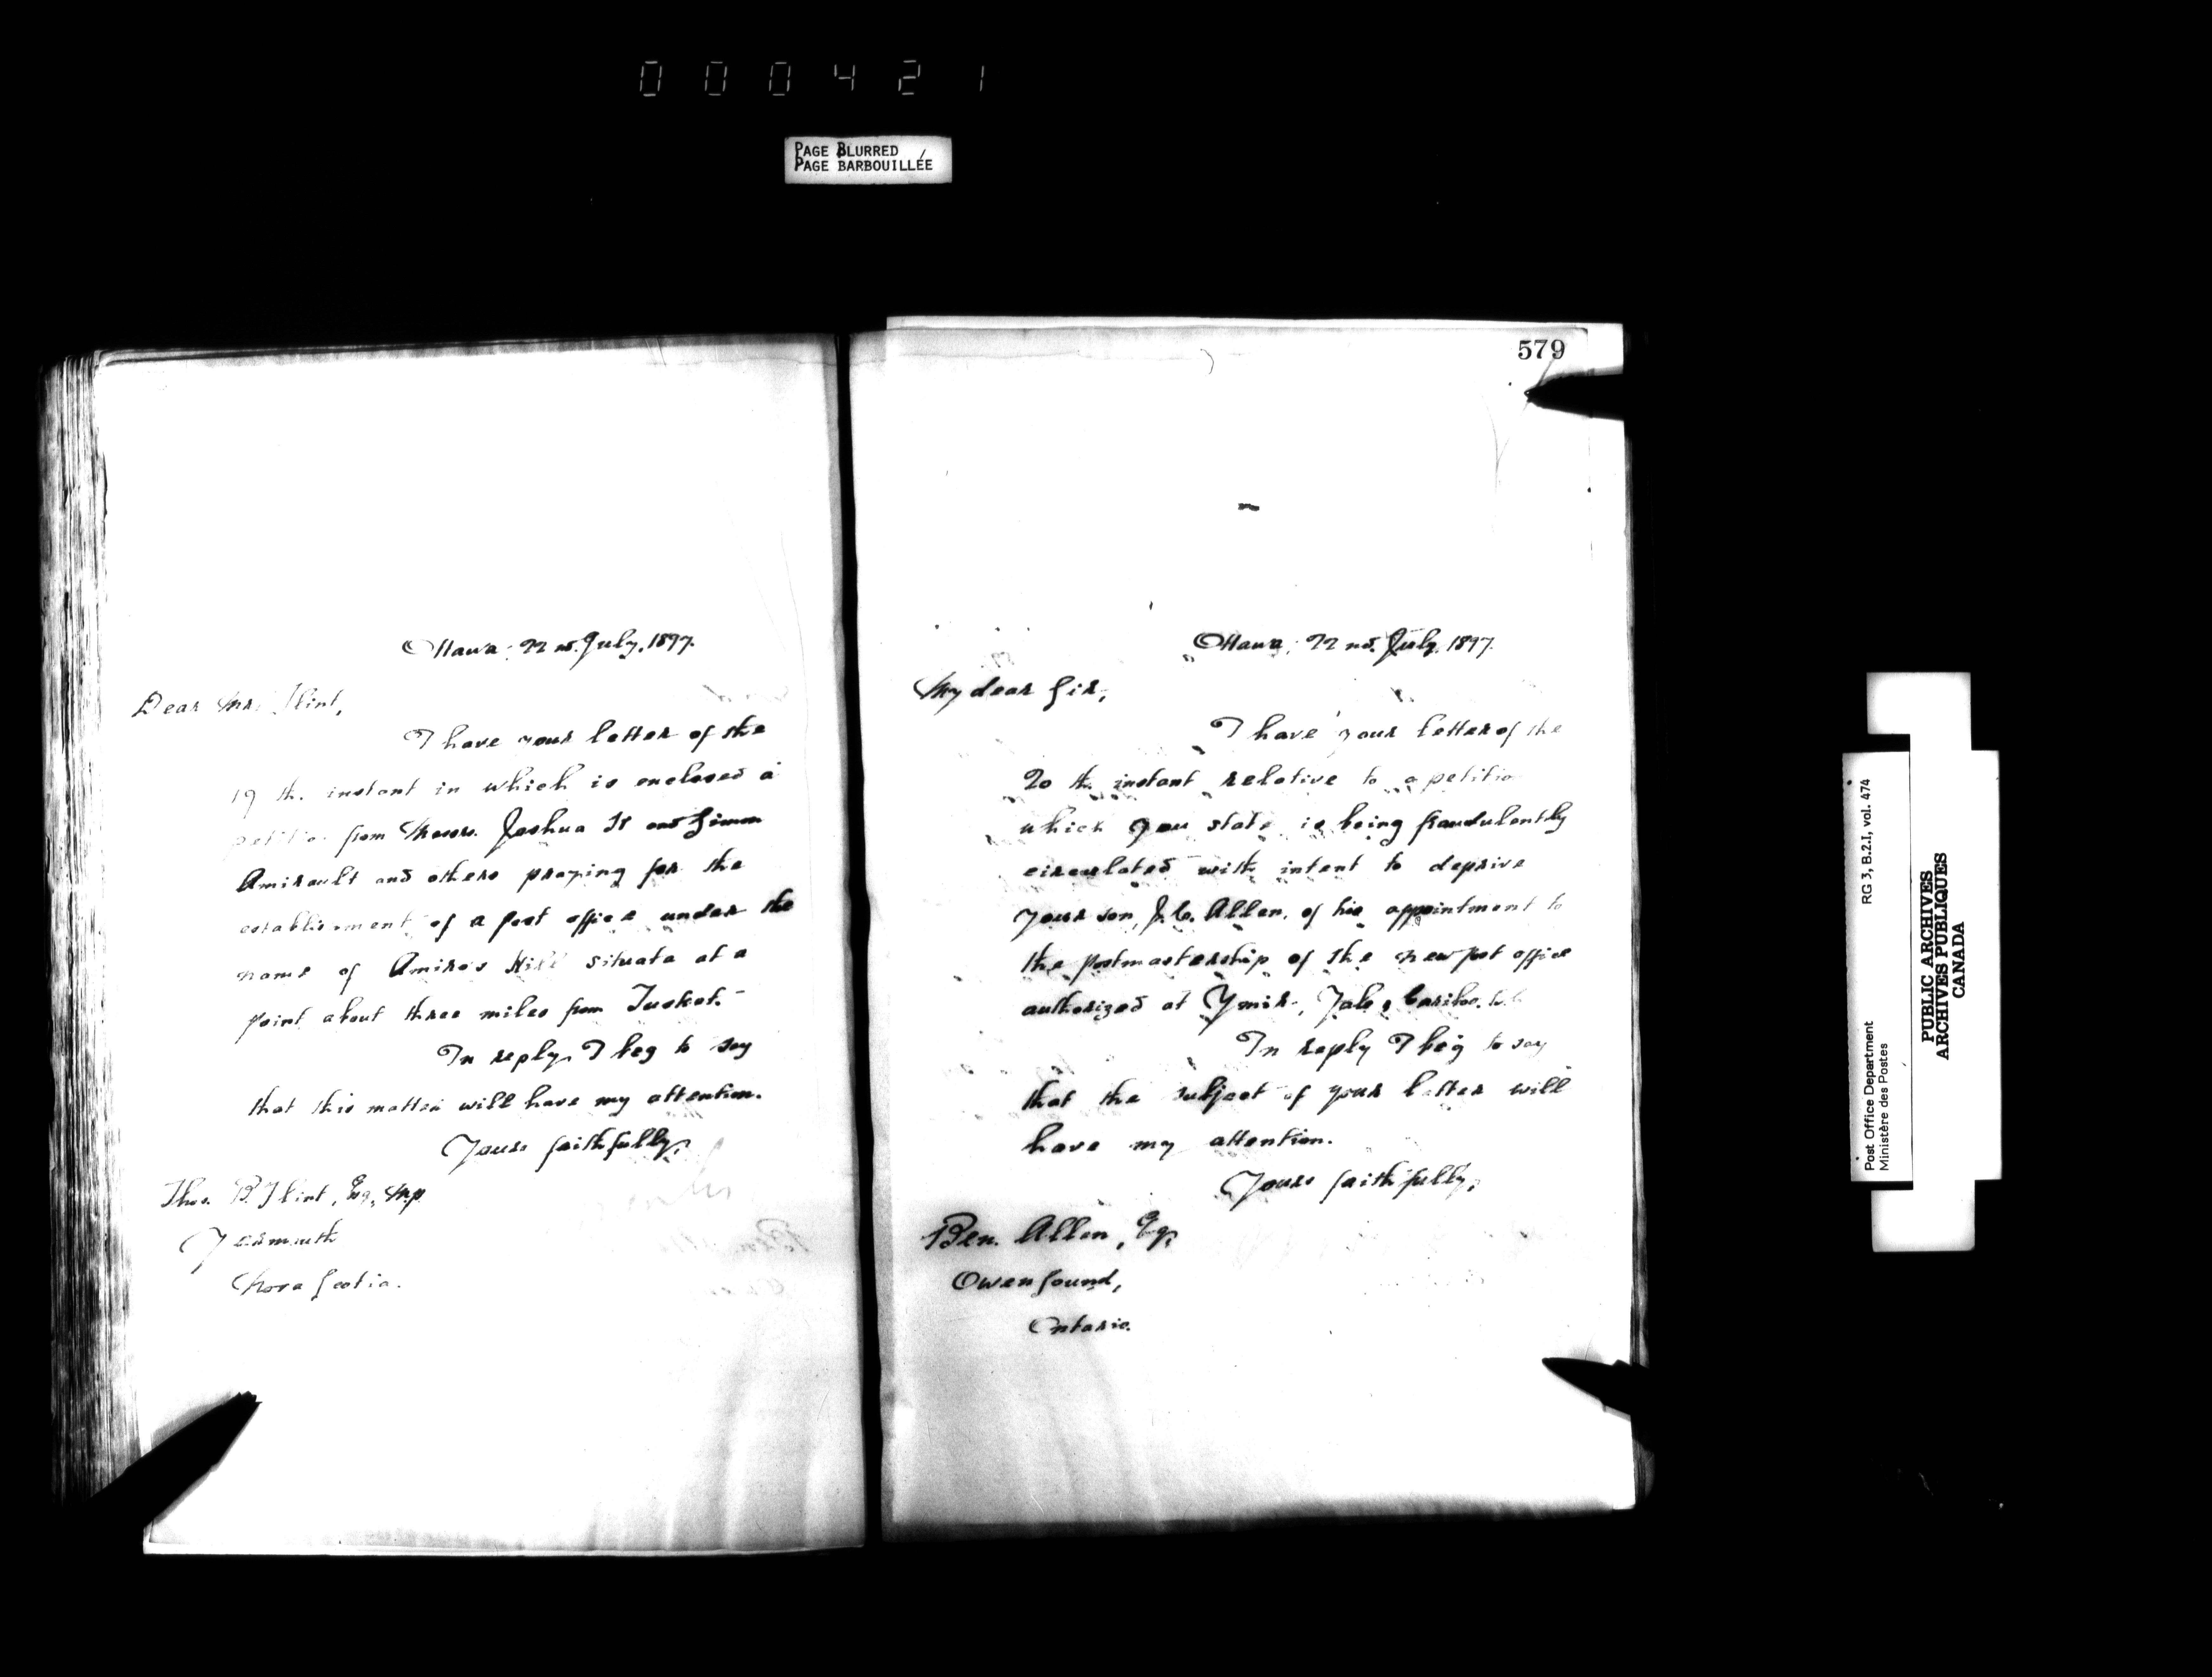 000421
PAGE BLURRED
PAGE BARBOUILLÉE
Ottawa; 22nd. July, 1897.
Dear Mr. Flint,
I have your letter of the
19 th. instant in which is enclosed a
petition from Messrs. Joshua and Simon
Amirault and others praying for the
establishment of a post office under the
name of Amiro's Hill situate at a
point about three miles from Tusket.
In reply, I beg to say
that this matter will have my attention.
Yours faithfully,
Thos. B. Flint, Esq., M.P
Yarmouth
Nova Scotia.
579
Ottawa; 22nd. July, 1897.
My dear Sir,
I have your letter of the
20 th. instant relative to a petition
which you state is being fraudulently
circulated with intent to deprive
your son, J. C. Allen, of his appointment to
the postmastership of the new post office
authorized at Ymir, Yale & Cariboo, B.C.
In reply I beg to say
that the subject of your letter will
have my attention.
Yours faithfully,
Ben. Allen, Esq,
Owen Sound,
Ontario.
Post Office Department RG 3, B.2.I, vol. 474
Ministère des Postes
PUBLIC ARCHIVES
ARCHIVES PUBLIQUES
CANADA